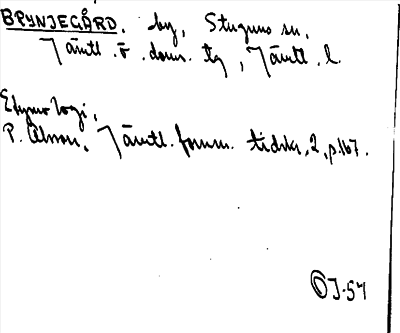 BRYNJEGÅRD. by, Stuguns sn.
Jämtl. ö. doms. tg, Jämtl. l.
Etymologi,
P. Olsson, Jämtl. fornm. tidskr, 2, p. 167.
J-54